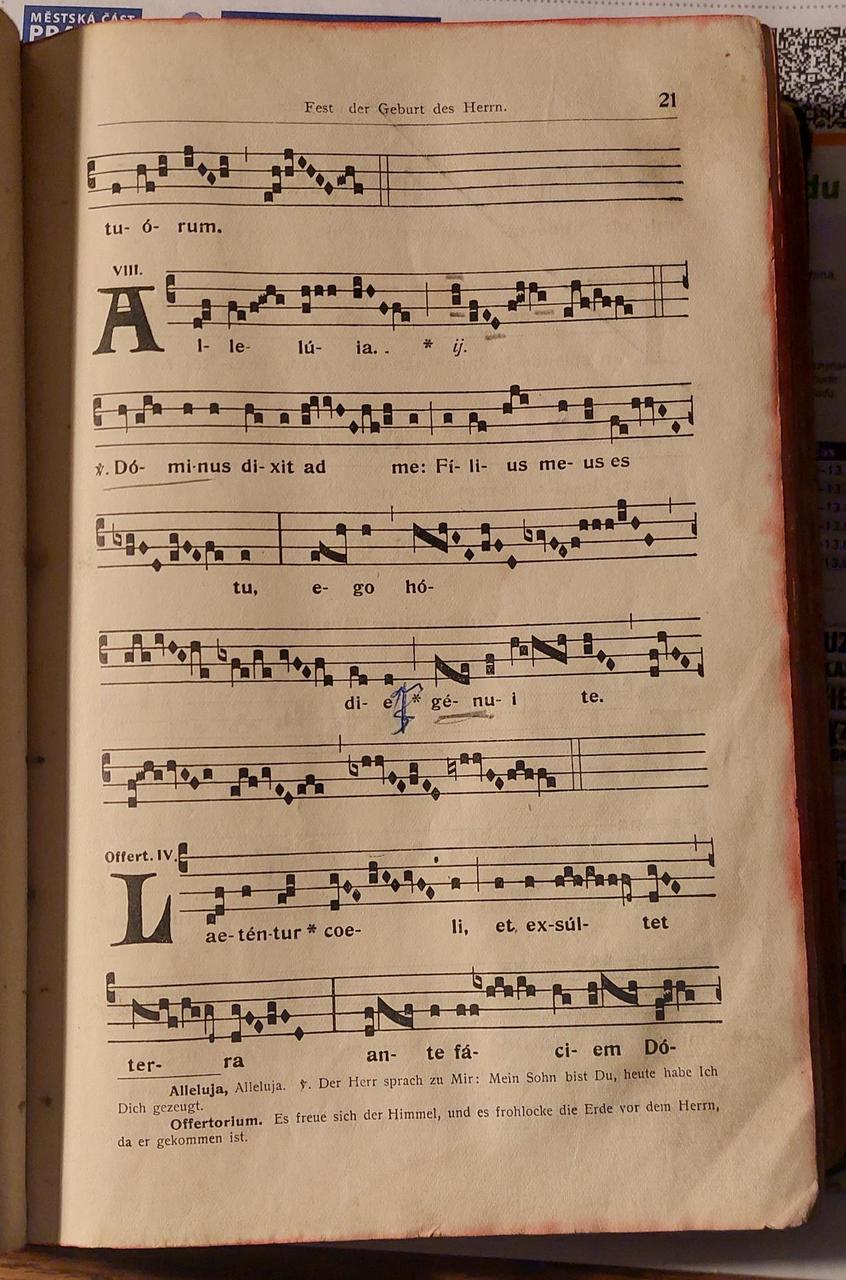 MĚSTSKÁ ČÁST
Fest der Geburt des Herrn.
21
tu- ó- rum.
VIII.
A l- le- lú- ia. . * ij.
℣. Dó- mi-nus di-xit ad me: Fí- li- us me- us es
tu, e- go hó-
di- e * gé- nu- i te.
Offert. IV.
L ae-tén-tur * coe- li, et ex-súl- tet
ter- ra an- te fá- ci- em Dó-
Alleluja, Alleluja. ℣. Der Herr sprach zu Mir: Mein Sohn bist Du, heute habe Ich
Dich gezeugt.
Offertorium. Es freue sich der Himmel, und es frohlocke die Erde vor dem Herrn,
da er gekommen ist.